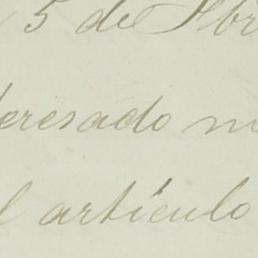 5 de Abri
teresado m
l artículo